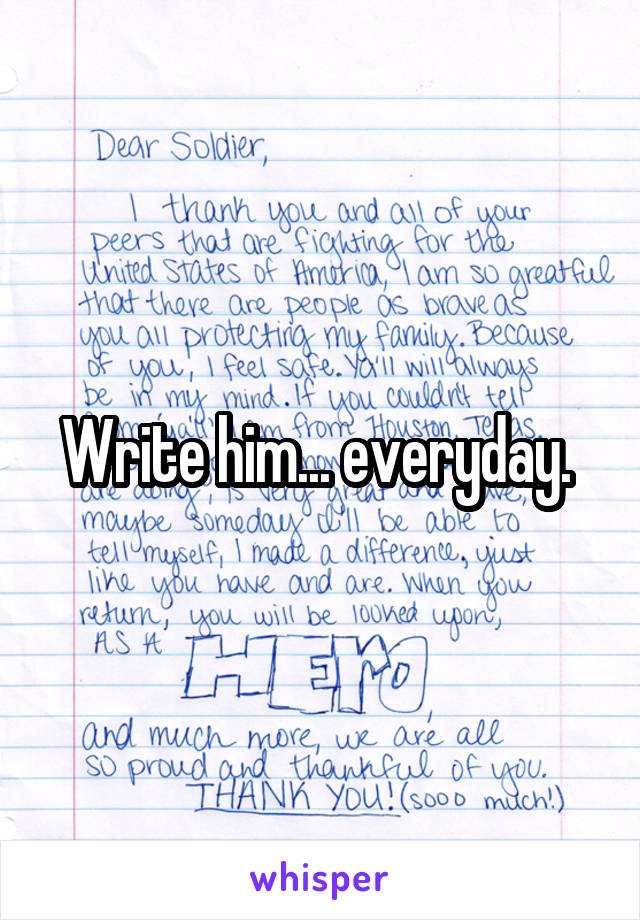 Dear Soldier,
I thank you and all of your
peers that are fighting for the
United States of America, I am so greatful
that there are people as brave as
you all protecting my family. Because
of you, I feel safe. Ya'll will always
be in my mind. If you couldn't tell
am from Houston, Texas.
Write him... everyday.
are doing, is very great and
maybe someday I'll be able to
tell myself, I made a difference, just
like you have and are. When you
return, you will be looked upon,
AS A
HERO,
and much more, we are all
so proud and thankful of you.
THANK YOU! (sooo much!)
whisper